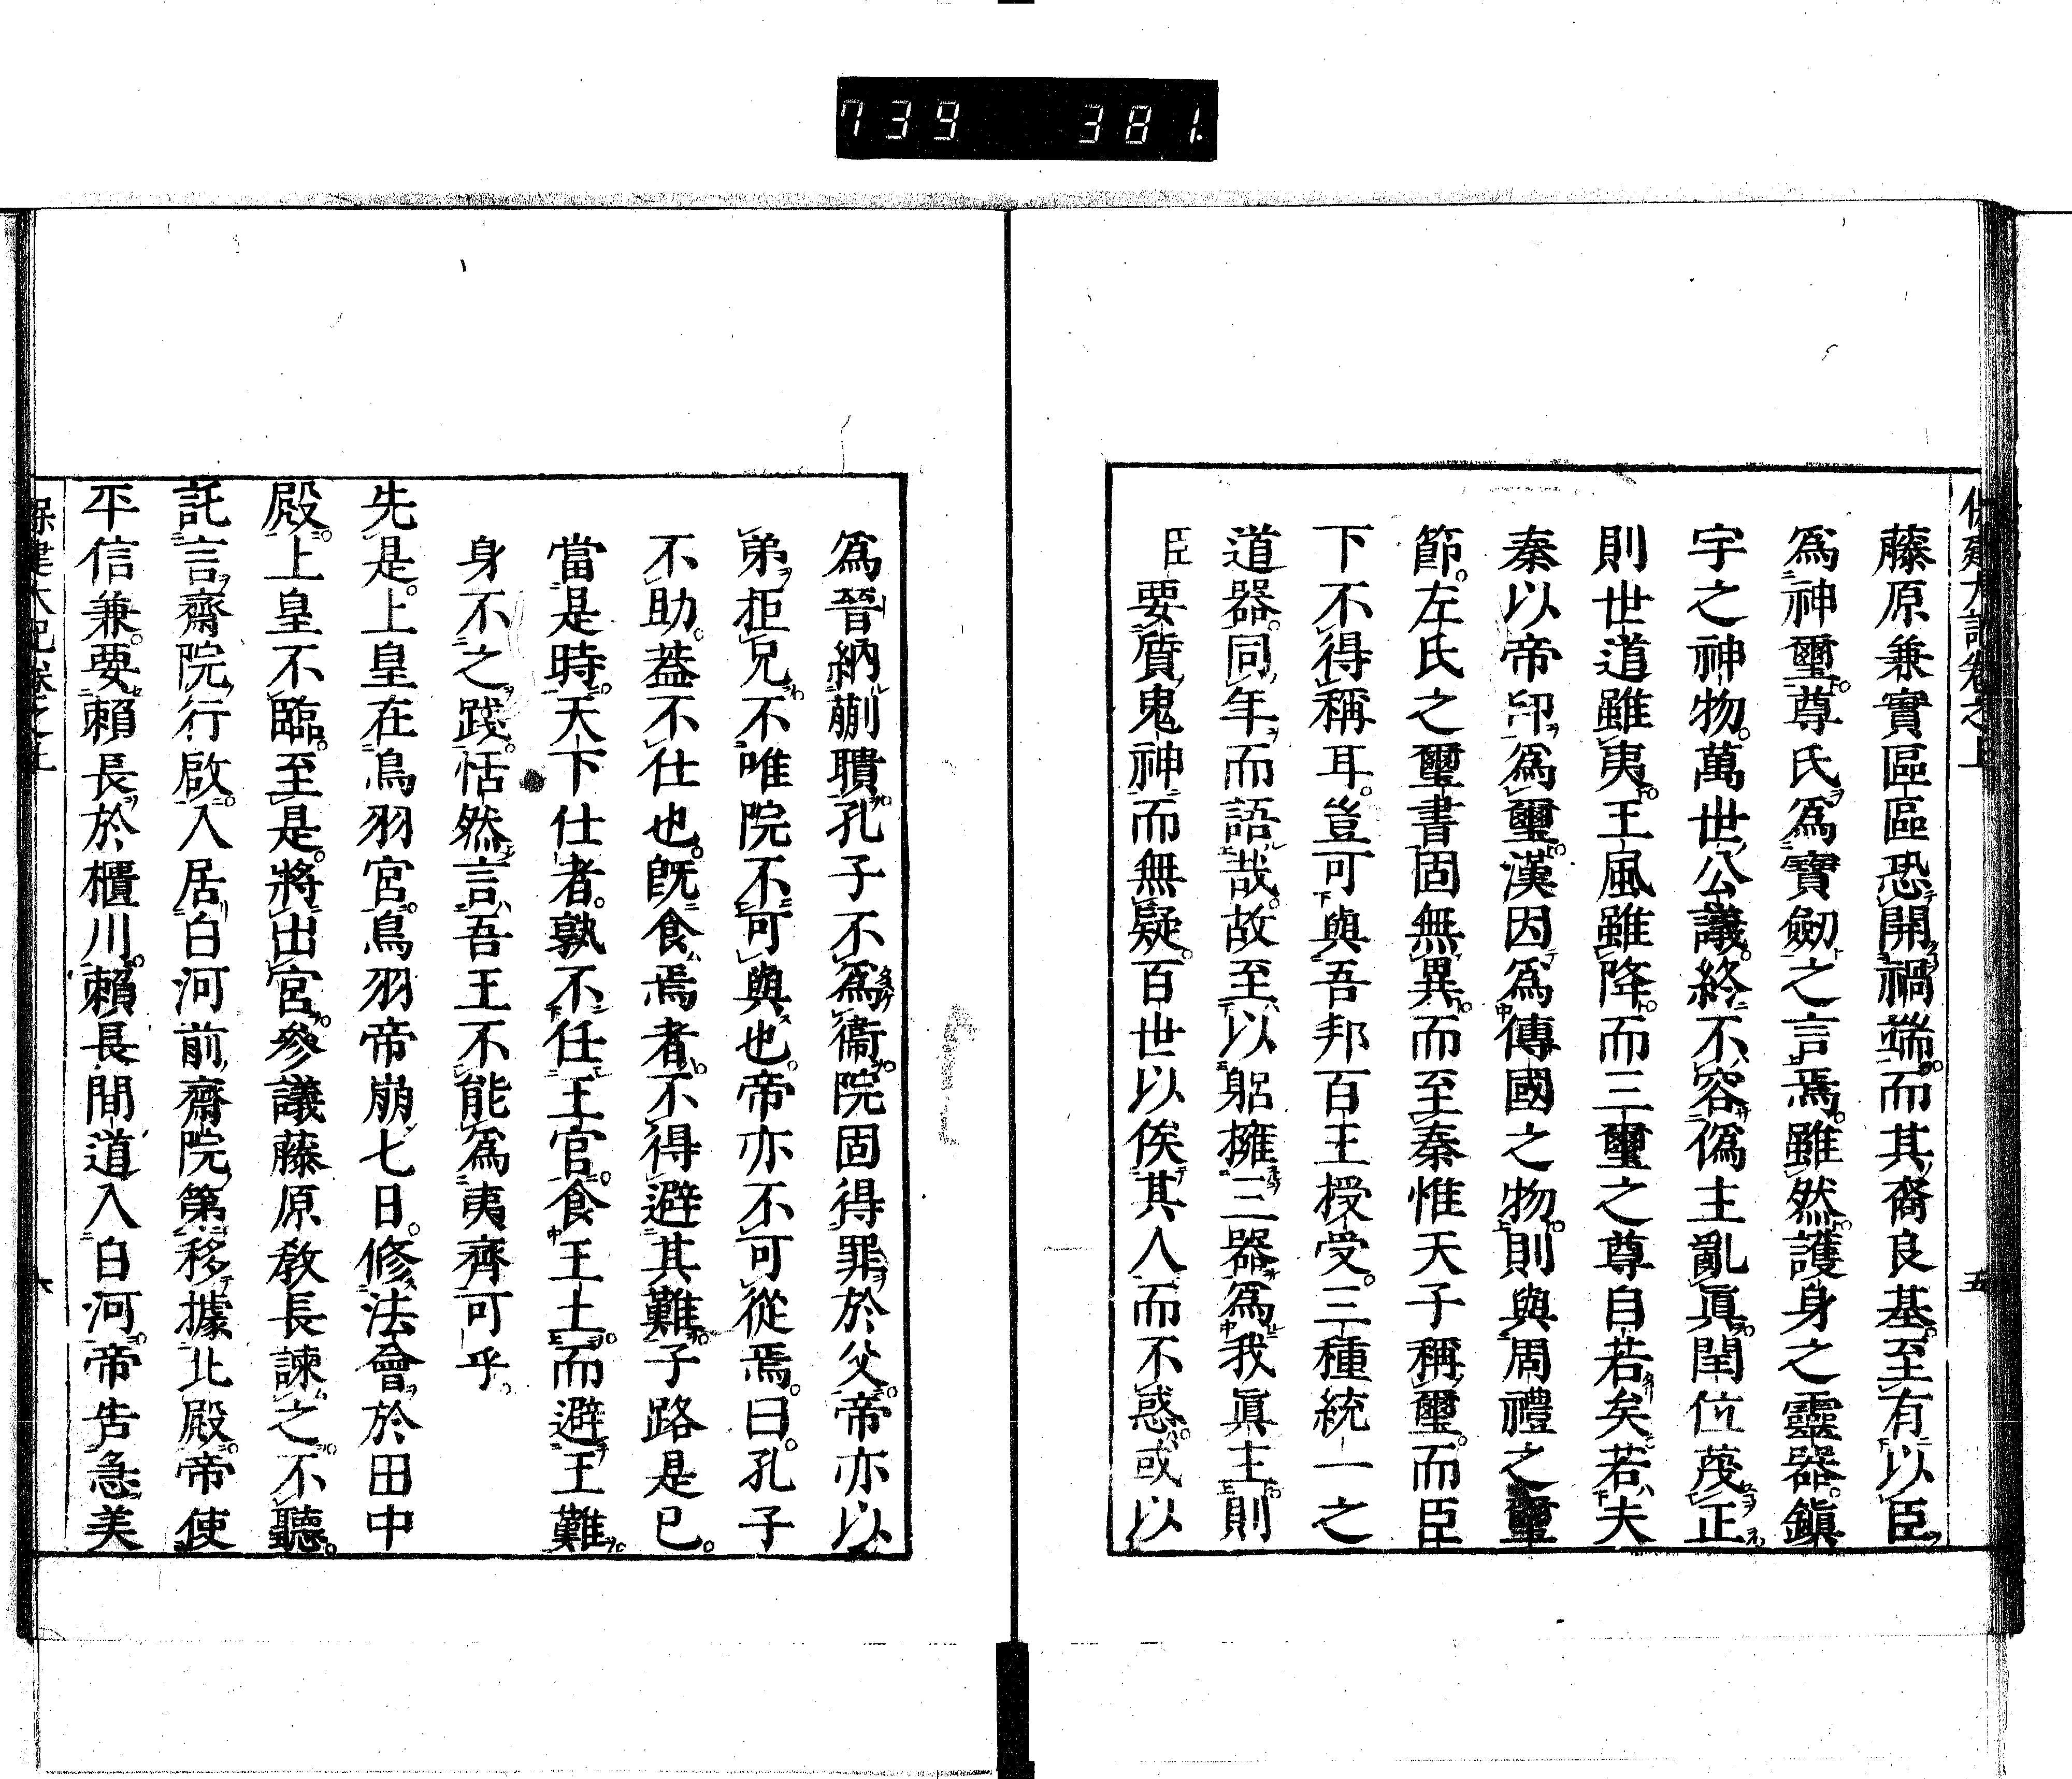 739 381
保建大記卷之上 五
藤原兼實區區恐開禍端而其裔良基至有以臣
爲神璽尊氏爲寶劔之言焉。雖然護身之靈器。鎭
宇之神物。萬世公議。終不容僞主亂眞閏位蔑正
則世道雖夷王風雖降而三璽之尊自若矣若夫
秦以帝印爲璽漢因爲傳國之物則與周禮之璽
節。左氏之璽書固無異而至秦惟天子稱璽。而臣
下不得稱耳。豈可與吾邦百王授受。三種統一之
道器。同年而語哉。故至以躬擁三器爲我眞主則
臣要質鬼神而無疑。百世以俟其人而不惑。或以
爲晉納蒯聵孔子不爲衞院固得罪於父。帝亦以
弟拒兄不唯院不可與也。帝亦不可從焉。曰。孔子
不助。葢不仕也。既食焉者。不得避其難子路是已。
當是時。天下仕者。孰不任王官。食王土而避王難
身不之踐。恬然言吾王不能爲夷齊可乎。
先是。上皇在鳥羽宮。鳥羽帝崩七日。修法會於田中
殿。上皇不臨。至是。將出宮參議藤原敎長諫之不聽。
託言齋院行啟。入居白河前齋院第移據北殿。帝使
平信兼。要賴長於櫃川。賴長間道入白河。帝告急美
保建大記卷之上 六